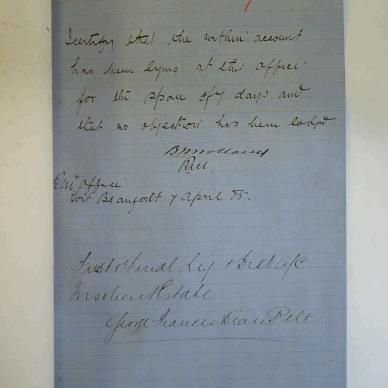 I certify that the within account
has been lying at this office
for the space of 7 days and
that no objection has been lodged
RM
Office
Fort Beaufort 7 April 85.
First & Final Liq & Dist a/c
Insolvent Estate
George Francis Dean Pell